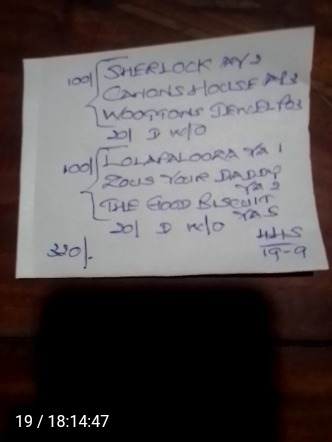 100/ SHERLOCK AY 3
CANONS HOUSE AY 2
WOOTTONS JEWEL PO3
20/ D W/O
100/ LOLAPALOOZA YA 1
ZOUS YOUR DADDY
YA 2
THE GOOD BISCUIT
YA 5
20/ D W/O
320/-
445
19-9
19 / 18:14:47